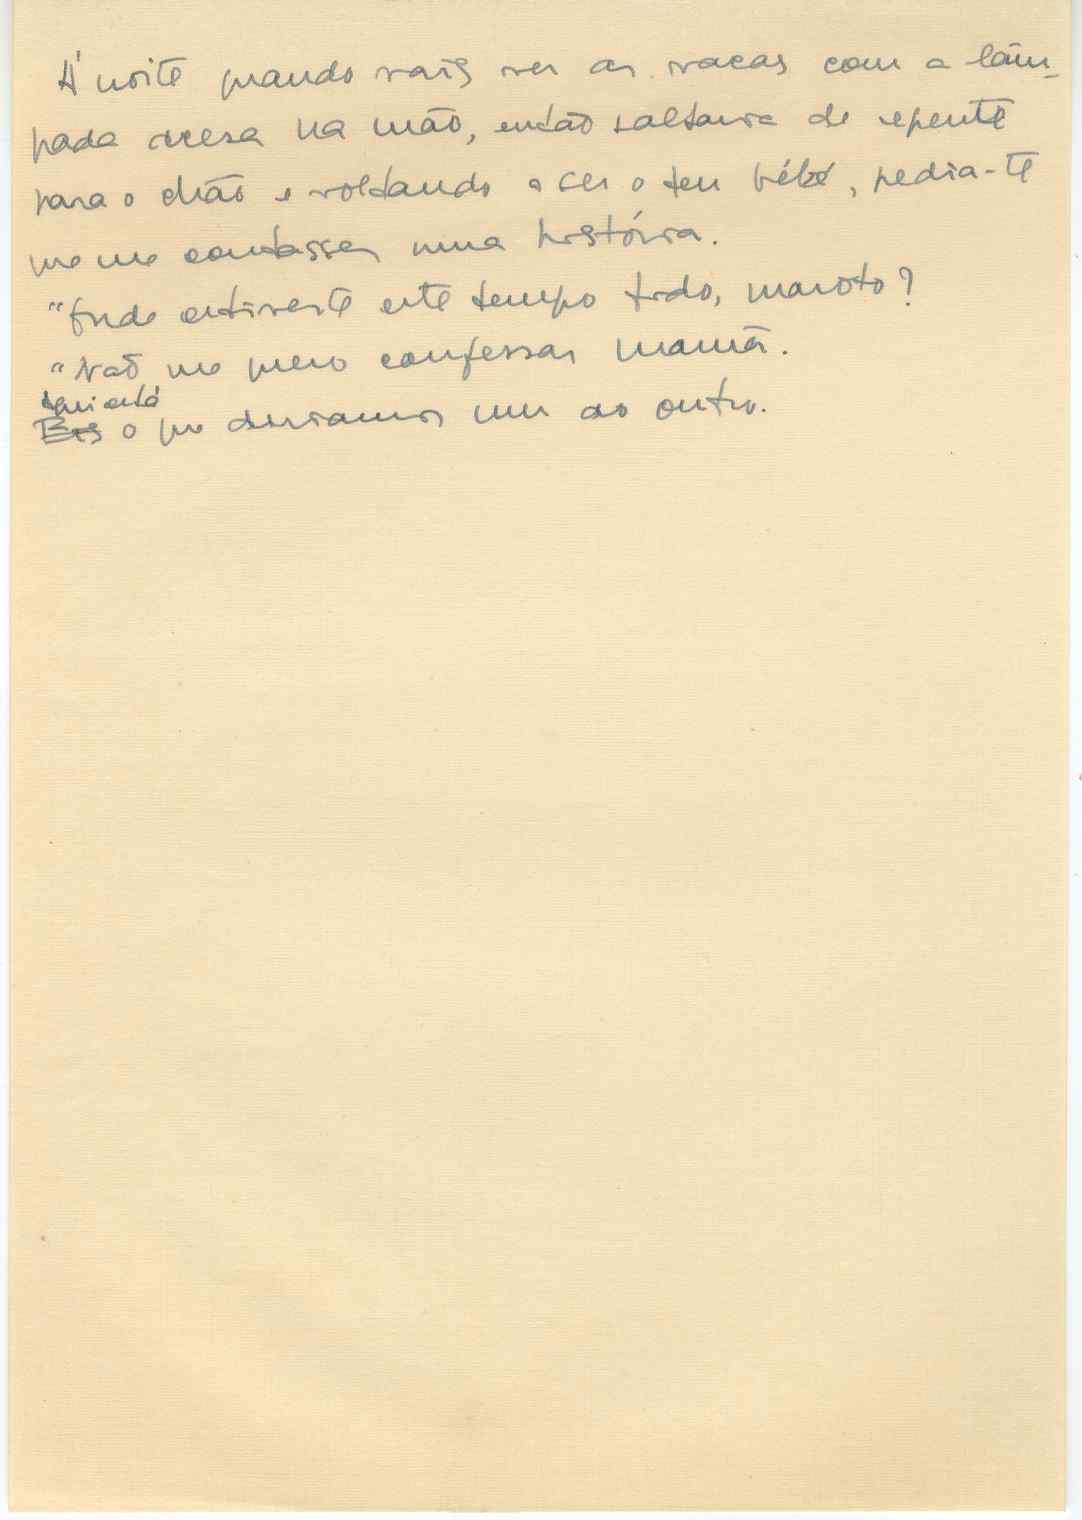 Á noite quando vais ver as vacas com a lâm-
pada acesa na mão, então saltava de repente
para o chão e voltando a ser o teu bébé, pedia-te
que me contasses uma história.
"Onde estiveste este tempo todo, maroto?
"Não me quero confessar mamã.
Aqui está
Eis o que deviamos um ao outro.